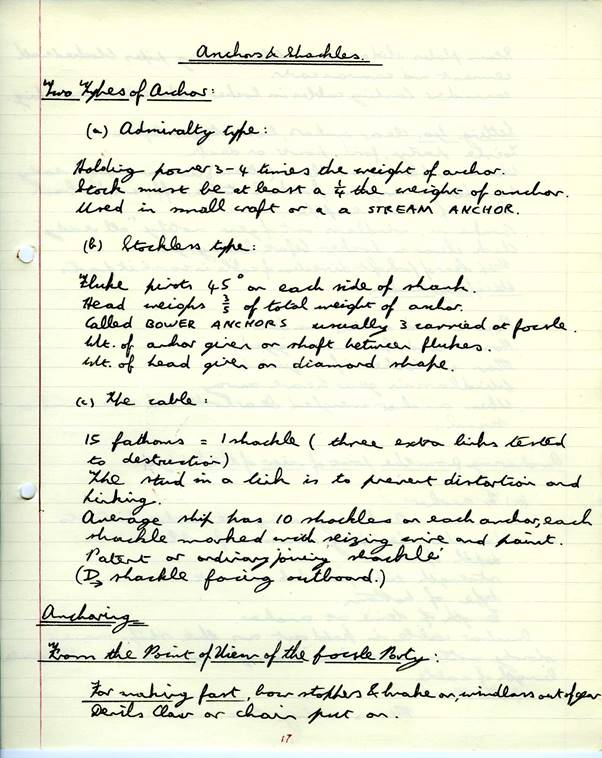 Anchors & Shackles.
Two Types of Anchor:
(a) Admiralty type:
Holding power 3-4 times the weight of anchor.
Stock must be at least a ¼ the weight of anchor.
Used in small craft or a a STREAM ANCHOR.
(b) Stockless type:
Fluke pivots 45° on each side of shank.
Head weighs ⅗ of total weight of anchor.
Called BOWER ANCHORS usually 3 carried at focsle.
Wt. of anchor given on shaft between flukes.
Wt. of head given on diamond shape.
(c) The cable:
15 fathoms = 1 shackle ( three extra links tested
to destruction)
The stud in a link is to prevent distortion and
kinking.
Average ship has 10 shackles on each anchor, each
shackle marked with seizing wire and paint.
Patent or ordinary joining shackle
(D→ shackle facing outboard.)
Anchoring
From the Point of View of the focsle Party:
For making fast, bow stoppers & brake on, windlass out of gear
Devils Claw or chain put on.
17